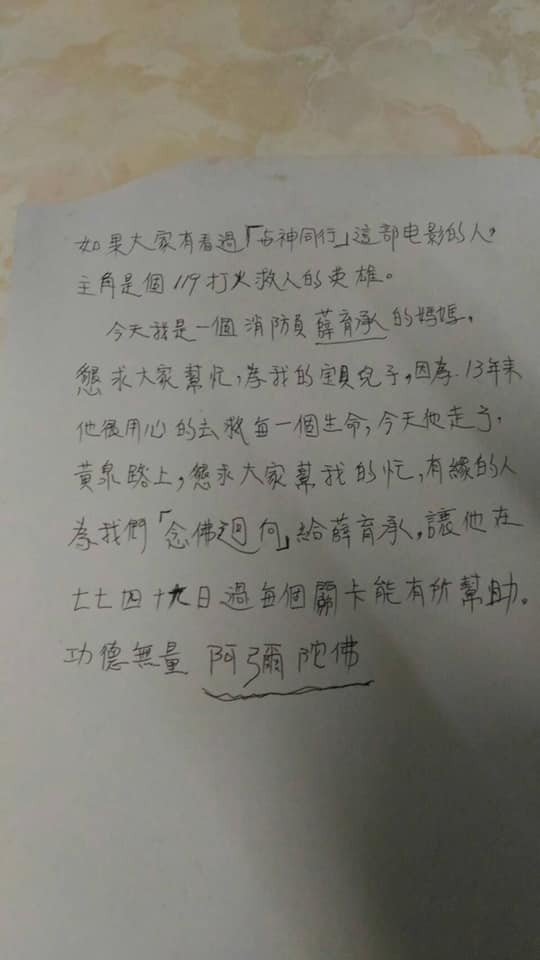 如果大家有看過「与神同行」這部电影的人，
主角是個119打火救人的英雄。
今天我是一個消防員薛育承的媽媽，
懇求大家幫忙，為我的寶貝兒子，因為13年來
他很用心的去救每一個生命，今天他走了，
黃泉路上，懇求大家幫我的忙，有緣的人
為我們「念佛迴向」給薛育承，讓他在
七七四十九日過每個關卡能有所幫助。
功德無量 阿彌陀佛